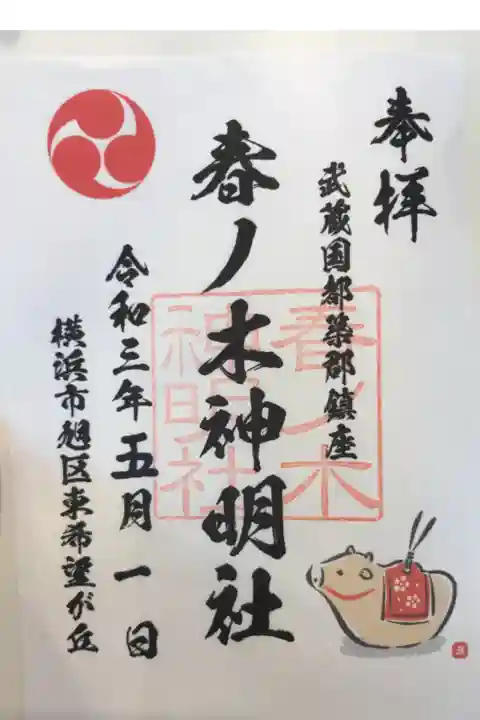 奉拝
武蔵国都築郡鎮座
春ノ木神明社
春ノ木
神明社
令和三年五月一日
横浜市旭区東希望が丘